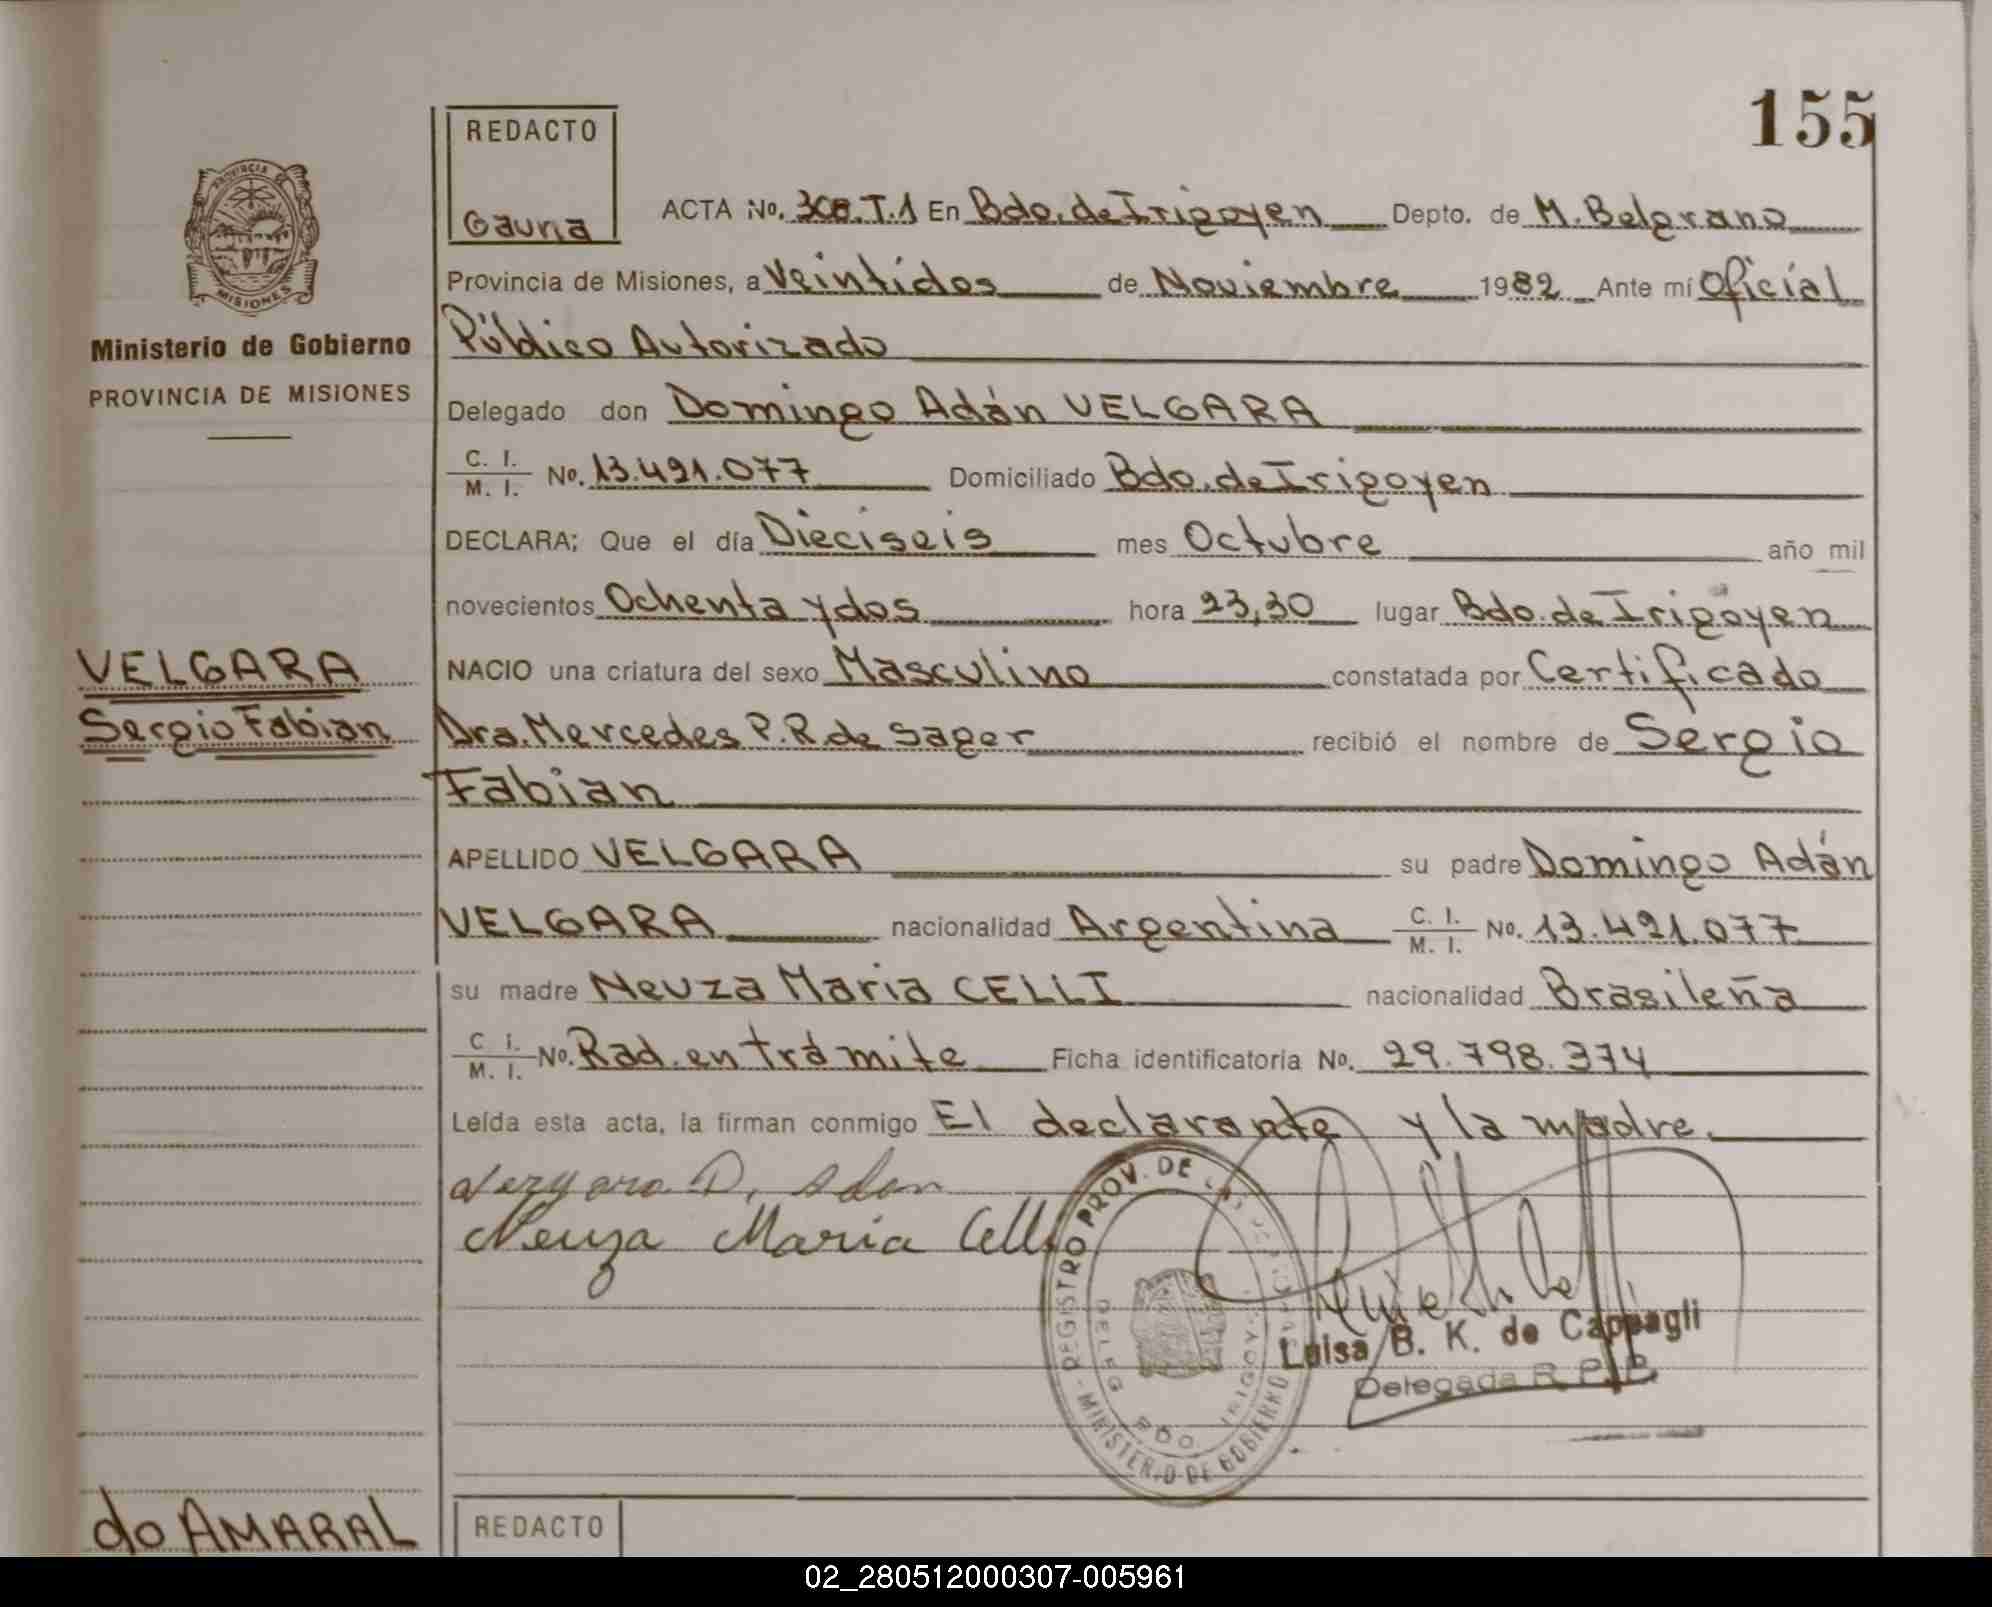 155
REDACTO
Gauna
PROVINCIA DE
MISIONES
Ministerio de Gobierno
PROVINCIA DE MISIONES
ACTA No. 308.T.1 En Bdo. de Irigoyen Depto. de M. Belgrano
Provincia de Misiones, a Veintidos de Noviembre 1982 Ante mí Oficial
Público Autorizado
Delegado don Domingo Adán VELGARA
C. I. / M. I. No. 13.491.077 Domiciliado Bdo. de Irigoyen
DECLARA; Que el día Dieciseis mes Octubre año mil
novecientos Ochenta y dos hora 23,30 lugar Bdo. de Irigoyen
VELGARA
Sergio Fabian
NACIO una criatura del sexo Masculino constatada por Certificado
Dra. Mercedes P.R. de Sager recibió el nombre de Sergio
Fabian
APELLIDO VELGARA su padre Domingo Adán
VELGARA nacionalidad Argentina C. I. / M. I. No. 13.491.077
su madre Neuza Maria CELLI nacionalidad Brasileña
C I. / M. I. No. Rad. en trámite Ficha identificatoria No. 29.798.374
Leída esta acta, la firman conmigo El declarante y la madre.
Vergara D. Adan
Neuza Maria Celli
REGISTRO PROV. DE LAS PERSONAS - MINISTERIO DE GOBIERNO
DELEG BDO IRIGOYEN
Luisa B. K. de Cappagli
Delegada R. P. P.
do AMARAL
REDACTO
02_280512000307-005961